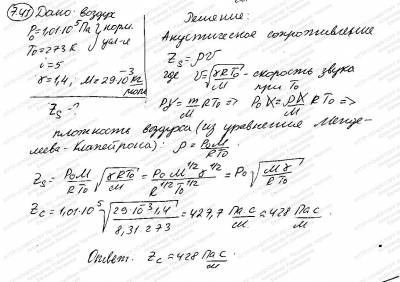 7.41 Дано: воздух
P₀=1,01·10⁵ Па } норм.
T₀=273 К } усл-я
i=5
γ=1,4, M=29·10⁻³ кг/моль
Zs - ?
Решение:
Акустическое сопротивление
Zs = ρV
где V=√(γRT₀/M) - скорость звука
при T₀
PV = m/M RT₀ => P₀V = ρV/M RT₀ =>
плотность воздуха (из уравнения Менде-
леева-Клапейрона): ρ = P₀M/RT₀
Zs = P₀M/RT₀ √(γRT₀/M) = P₀M^1/2 γ^1/2 / R^1/2 T₀^1/2 = P₀ √(Mγ/RT₀)
Zc = 1,01·10⁵ √(29·10⁻³·1,4 / 8,31·273) = 427,7 Па·с/м ≈ 428 Па·с/м
Ответ: Zc = 428 Па·с/м.